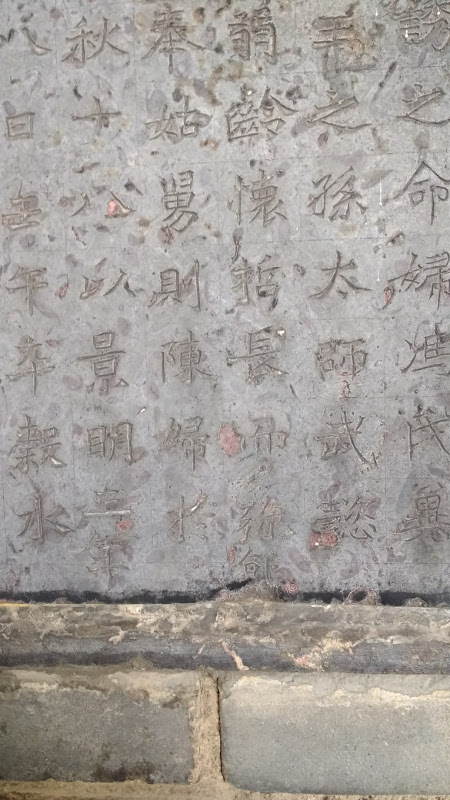 誘之命婦馮氏冀
王之孫太師武懿
齡懷哲長而彌
奉姑舅則陳婦於
秋十八以景明三年
八日午卒穀水